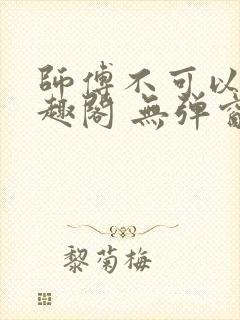 師傅不可以
趣閣 無彈窗
黎菊梅